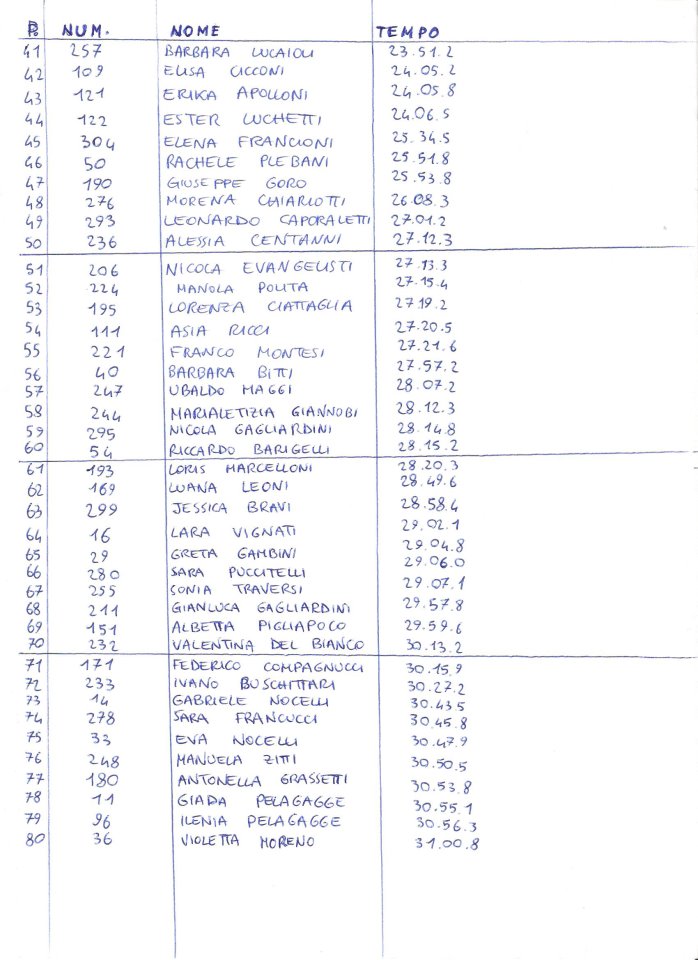 P. NUM. NOME TEMPO
41 257 BARBARA LUCAIOLI 23.51.2
42 109 ELISA CICCONI 24.05.2
43 121 ERIKA APOLLONI 24.05.8
44 122 ESTER LUCHETTI 24.06.5
45 304 ELENA FRANCIONI 25.34.5
46 50 RACHELE PLEBANI 25.51.8
47 190 GIUSEPPE GORO 25.53.8
48 276 MORENA CHIARLOTTI 26.08.3
49 293 LEONARDO CAPORALETTI 27.01.2
50 236 ALESSIA CENTANNI 27.12.3
51 206 NICOLA EVANGELISTI 27.13.3
52 224 MANOLA POLITA 27.15.4
53 195 LORENZA CIATTAGLIA 27.19.2
54 111 ASIA RICCI 27.20.5
55 221 FRANCO MONTESI 27.21.6
56 40 BARBARA BITTI 27.57.2
57 247 UBALDO MAGGI 28.07.2
58 244 MARIALETIZIA GIANNOBI 28.12.3
59 295 NICOLA GAGLIARDINI 28.14.8
60 54 RICCARDO BARIGELLI 28.15.2
61 193 LORIS MARCELLONI 28.20.3
62 169 LUANA LEONI 28.49.6
63 299 JESSICA BRAVI 28.58.4
64 16 LARA VIGNATI 29.02.1
65 29 GRETA GAMBINI 29.04.8
66 280 SARA PUCCITELLI 29.06.0
67 255 SONIA TRAVERSI 29.07.1
68 211 GIANLUCA GAGLIARDINI 29.57.8
69 151 ALBETTA PIGLIAPOCO 29.59.6
70 232 VALENTINA DEL BIANCO 30.13.2
71 171 FEDERICO COMPAGNUCCI 30.15.9
72 233 IVANO BUSCHITTARI 30.27.2
73 14 GABRIELE NOCELLI 30.43.5
74 278 SARA FRANCUCCI 30.45.8
75 33 EVA NOCELLI 30.47.9
76 248 MANUELA ZITTI 30.50.5
77 180 ANTONELLA GRASSETTI 30.53.8
78 11 GIADA PELAGAGGE 30.55.1
79 96 ILENIA PELAGAGGE 30.56.3
80 36 VIOLETTA MORENO 31.00.8